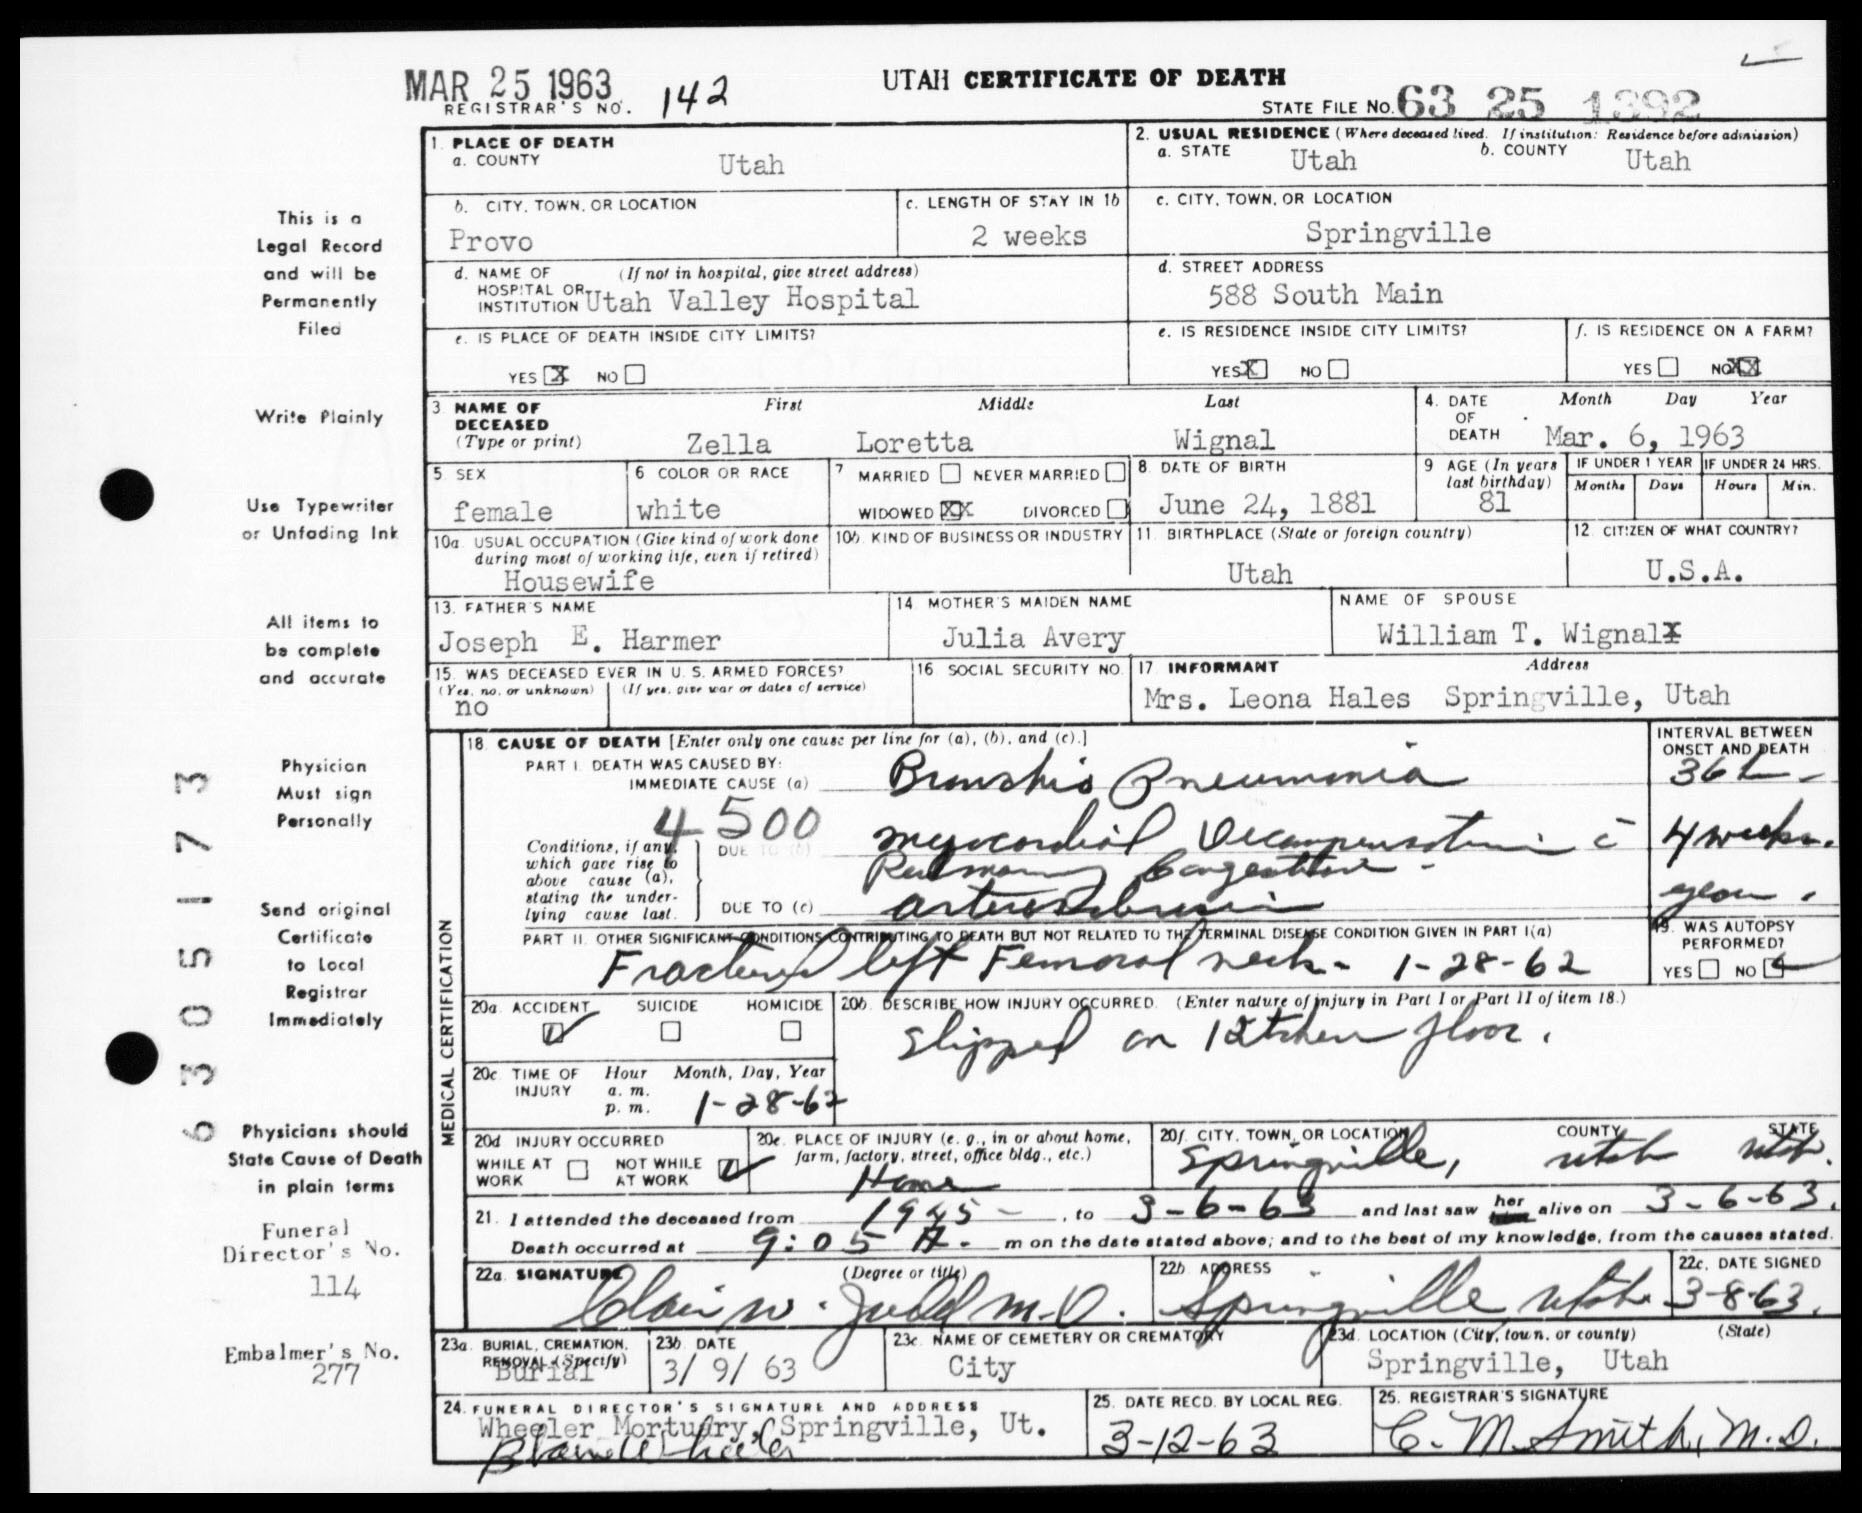 MAR 25 1963
REGISTRAR'S NO. 142
UTAH CERTIFICATE OF DEATH
STATE FILE NO. 63 25 1392
1. PLACE OF DEATH
a. COUNTY Utah
2. USUAL RESIDENCE (Where deceased lived. If institution: Residence before admission)
a. STATE Utah b. COUNTY Utah
b. CITY, TOWN, OR LOCATION
Provo
c. LENGTH OF STAY IN 1b
2 weeks
c. CITY, TOWN, OR LOCATION
Springville
d. NAME OF (If not in hospital, give street address)
HOSPITAL OR
INSTITUTION Utah Valley Hospital
d. STREET ADDRESS
588 South Main
e. IS PLACE OF DEATH INSIDE CITY LIMITS?
YES X NO
e. IS RESIDENCE INSIDE CITY LIMITS?
YES X NO
f. IS RESIDENCE ON A FARM?
YES NO XX
3. NAME OF DECEASED
(Type or print)
First Middle Last
Zella Loretta Wignal
4. DATE OF DEATH
Month Day Year
Mar. 6, 1963
5. SEX
female
6 COLOR OR RACE
white
7 MARRIED NEVER MARRIED
WIDOWED XX DIVORCED
8. DATE OF BIRTH
June 24, 1881
9 AGE (In years last birthday)
81
IF UNDER 1 YEAR
Months Days
IF UNDER 24 HRS.
Hours Min.
10a. USUAL OCCUPATION (Give kind of work done
during most of working life, even if retired)
Housewife
10b. KIND OF BUSINESS OR INDUSTRY
11. BIRTHPLACE (State or foreign country)
Utah
12 CITIZEN OF WHAT COUNTRY?
U.S.A.
13. FATHER'S NAME
Joseph E. Harmer
14 MOTHER'S MAIDEN NAME
Julia Avery
NAME OF SPOUSE
William T. Wignal
15. WAS DECEASED EVER IN U. S. ARMED FORCES?
(Yes, no, or unknown) (If yes, give war or dates of service)
no
16 SOCIAL SECURITY NO.
17 INFORMANT Address
Mrs. Leona Hales Springville, Utah
MEDICAL CERTIFICATION
18. CAUSE OF DEATH [Enter only one cause per line for (a), (b), and (c).]
PART I. DEATH WAS CAUSED BY:
IMMEDIATE CAUSE (a) Broncho Pneumonia
INTERVAL BETWEEN
ONSET AND DEATH
36 h
4500
Conditions, if any,
which gave rise to
above cause (a),
stating the under-
lying cause last.
DUE TO (b) myocardial Decompensation c̄
Pulmonary Congestion -
4 weeks.
DUE TO (c) arteriosclerosis
years.
PART II. OTHER SIGNIFICANT CONDITIONS CONTRIBUTING TO DEATH BUT NOT RELATED TO THE TERMINAL DISEASE CONDITION GIVEN IN PART I(a)
Fractured left Femoral neck - 1-28-62
19. WAS AUTOPSY
PERFORMED?
YES NO
20a. ACCIDENT SUICIDE HOMICIDE
20b. DESCRIBE HOW INJURY OCCURRED. (Enter nature of injury in Part I or Part II of item 18.)
Slipped on kitchen floor.
20c. TIME OF INJURY
Hour Month, Day, Year
a. m.
p. m. 1-28-62
20d INJURY OCCURRED
WHILE AT WORK NOT WHILE AT WORK
20e. PLACE OF INJURY (e. g., in or about home,
farm, factory, street, office bldg., etc.)
Home
20f. CITY, TOWN, OR LOCATION COUNTY STATE
Springville, Utah Utah.
21. I attended the deceased from 1945 - , to 3-6-63 and last saw her him alive on 3-6-63.
Death occurred at 9:05 A. m on the date stated above; and to the best of my knowledge, from the causes stated.
22a. SIGNATURE (Degree or title)
Clair W. Judd M.D.
22b ADDRESS
Springville Utah
22c. DATE SIGNED
3-8-63.
23a. BURIAL, CREMATION,
REMOVAL (Specify)
Burial
23b DATE
3/ 9/ 63
23c. NAME OF CEMETERY OR CREMATORY
City
23d. LOCATION (City, town, or county) (State)
Springville, Utah
24. FUNERAL DIRECTOR'S SIGNATURE AND ADDRESS
Wheeler Mortuary, Springville, Ut.
Blaine Wheeler
25. DATE RECD. BY LOCAL REG.
3-12-63
25. REGISTRAR'S SIGNATURE
C. M. Smith, M.D.
This is a
Legal Record
and will be
Permanently
Filed
Write Plainly
Use Typewriter
or Unfading Ink
All items to
be complete
and accurate
Physician
Must sign
Personally
Send original
Certificate
to Local
Registrar
Immediately
Physicians should
State Cause of Death
in plain terms
Funeral
Director's No.
114
Embalmer's No.
277
63051773